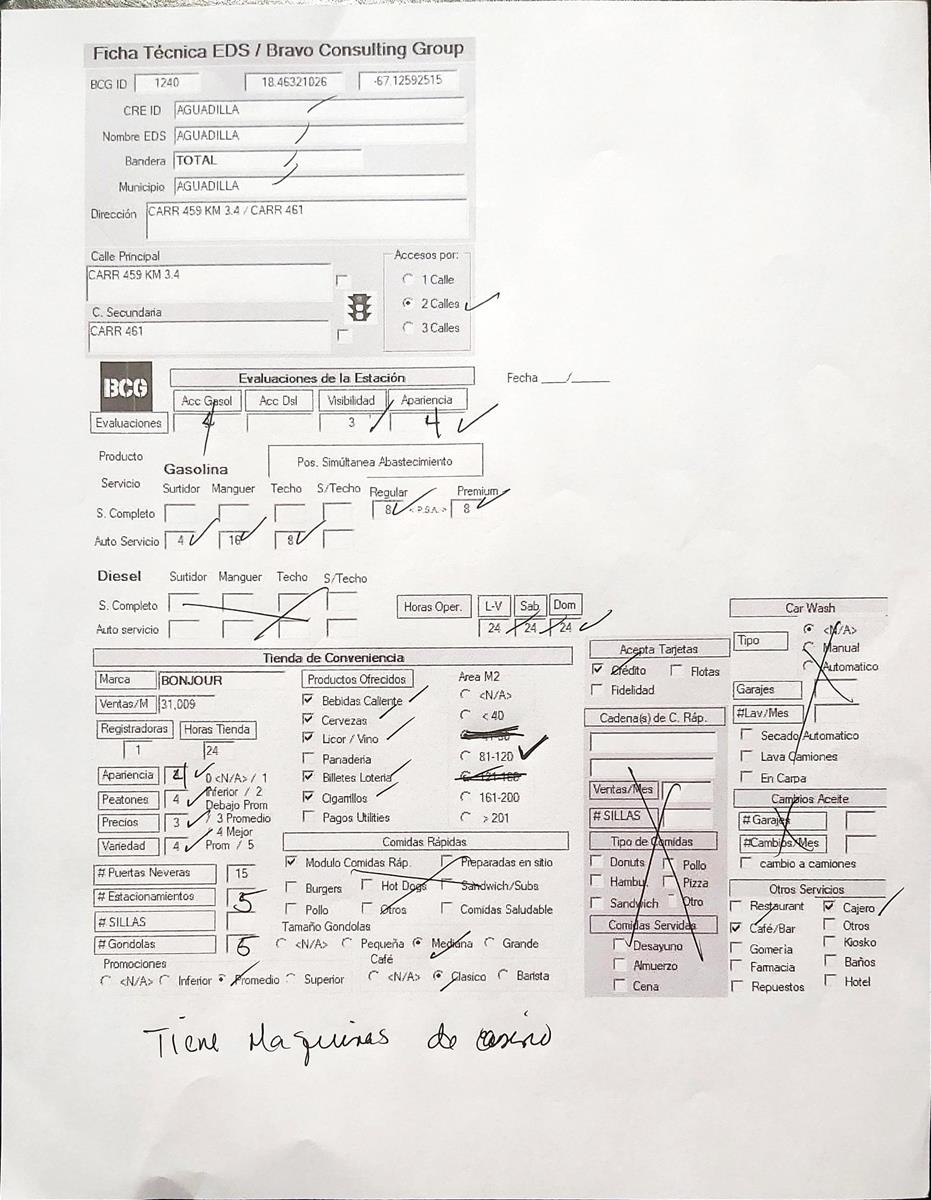 Ficha Técnica EDS / Bravo Consulting Group
BCG ID 1240 18.46321026 -67.12592515
CRE ID AGUADILLA
Nombre EDS AGUADILLA
Bandera TOTAL
Municipio AGUADILLA
Dirección CARR 459 KM 3.4 / CARR 461
Calle Principal
CARR 459 KM 3.4
C. Secundaria
CARR 461
Accesos por:
1 Calle
2 Calles
3 Calles
BCG
Evaluaciones de la Estación
Fecha ___/_____
Acc Gasol Acc Dsl Visibilidad Apariencia
Evaluaciones 4 3 4
Producto
Servicio
Gasolina
Pos. Simúltanea Abastecimiento
Surtidor Manguer Techo S/Techo Regular Premium
S. Completo 8 < P.S.A. > 8
Auto Servicio 4 16 8
Diesel Surtidor Manguer Techo S/Techo
S. Completo
Auto servicio
Horas Oper. L-V Sab Dom
24 24 24
Tienda de Conveniencia
Marca BONJOUR
Ventas/M 31,009
Registradoras Horas Tienda
1 24
Apariencia
Peatones 4
Precios 3
Variedad 4
0 <N/A> / 1
Inferior / 2
Debajo Prom
/ 3 Promedio
/ 4 Mejor
Prom / 5
# Puertas Neveras 15
# Estacionamientos 5
# SILLAS
# Gondolas 6
Promociones
<N/A> Inferior Promedio Superior
Productos Ofrecidos
Bebidas Caliente
Cervezas
Licor / Vino
Panaderia
Billetes Loteria
Cigarrillos
Pagos Utilities
Area M2
<N/A>
< 40
81-120
161-200
> 201
Comidas Rápidas
Modulo Comidas Ráp. Preparadas en sitio
Burgers Hot Dogs Sandwich/Subs
Pollo Otros Comidas Saludable
Tamaño Gondolas
<N/A> Pequeña Mediana Grande
Café
<N/A> Clasico Barista
Acepta Tarjetas
Crédito Flotas
Fidelidad
Cadena(s) de C. Ráp.
Ventas/Mes
# SILLAS
Tipo de Comidas
Donuts Pollo
Hambu. Pizza
Sandwich Otro
Comidas Servidas
Desayuno
Almuerzo
Cena
Car Wash
Tipo
<N/A>
Manual
Automatico
Garajes
#Lav/Mes
Secado Automatico
Lava Camiones
En Carpa
Cambios Aceite
# Garajes
#Cambios/Mes
cambio a camiones
Otros Servicios
Restaurant Cajero
Café/Bar Otros
Gomeria Kiosko
Farmacia Baños
Repuestos Hotel
Tiene Maquinas de casino